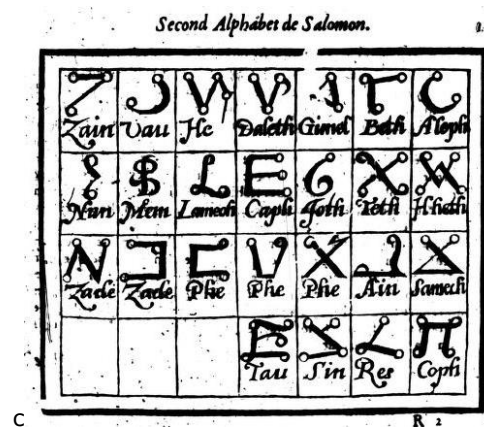 Second Alphabet de Salomon.
Zain Vau He Daleth Gimel Beth Aleph
Nun Mem Lamech Caph Joth Teth H-heth
Zade Zade Phe Phe Phe Ain Samech
Tau Sin Res Coph
C
R 2